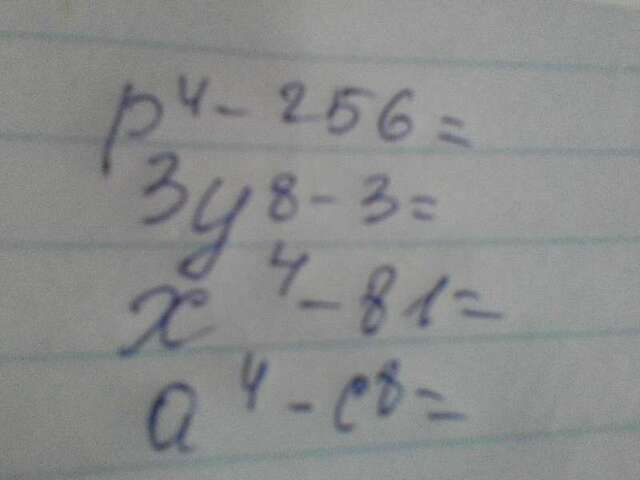 p⁴ - 256 =
3y⁸ - 3 =
x⁴ - 81 =
a⁴ - c⁸ =